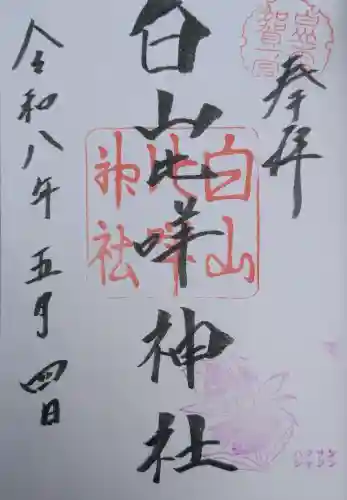 奉拝
白山比咩神社
令和八年五月四日
白山
比咩
神社